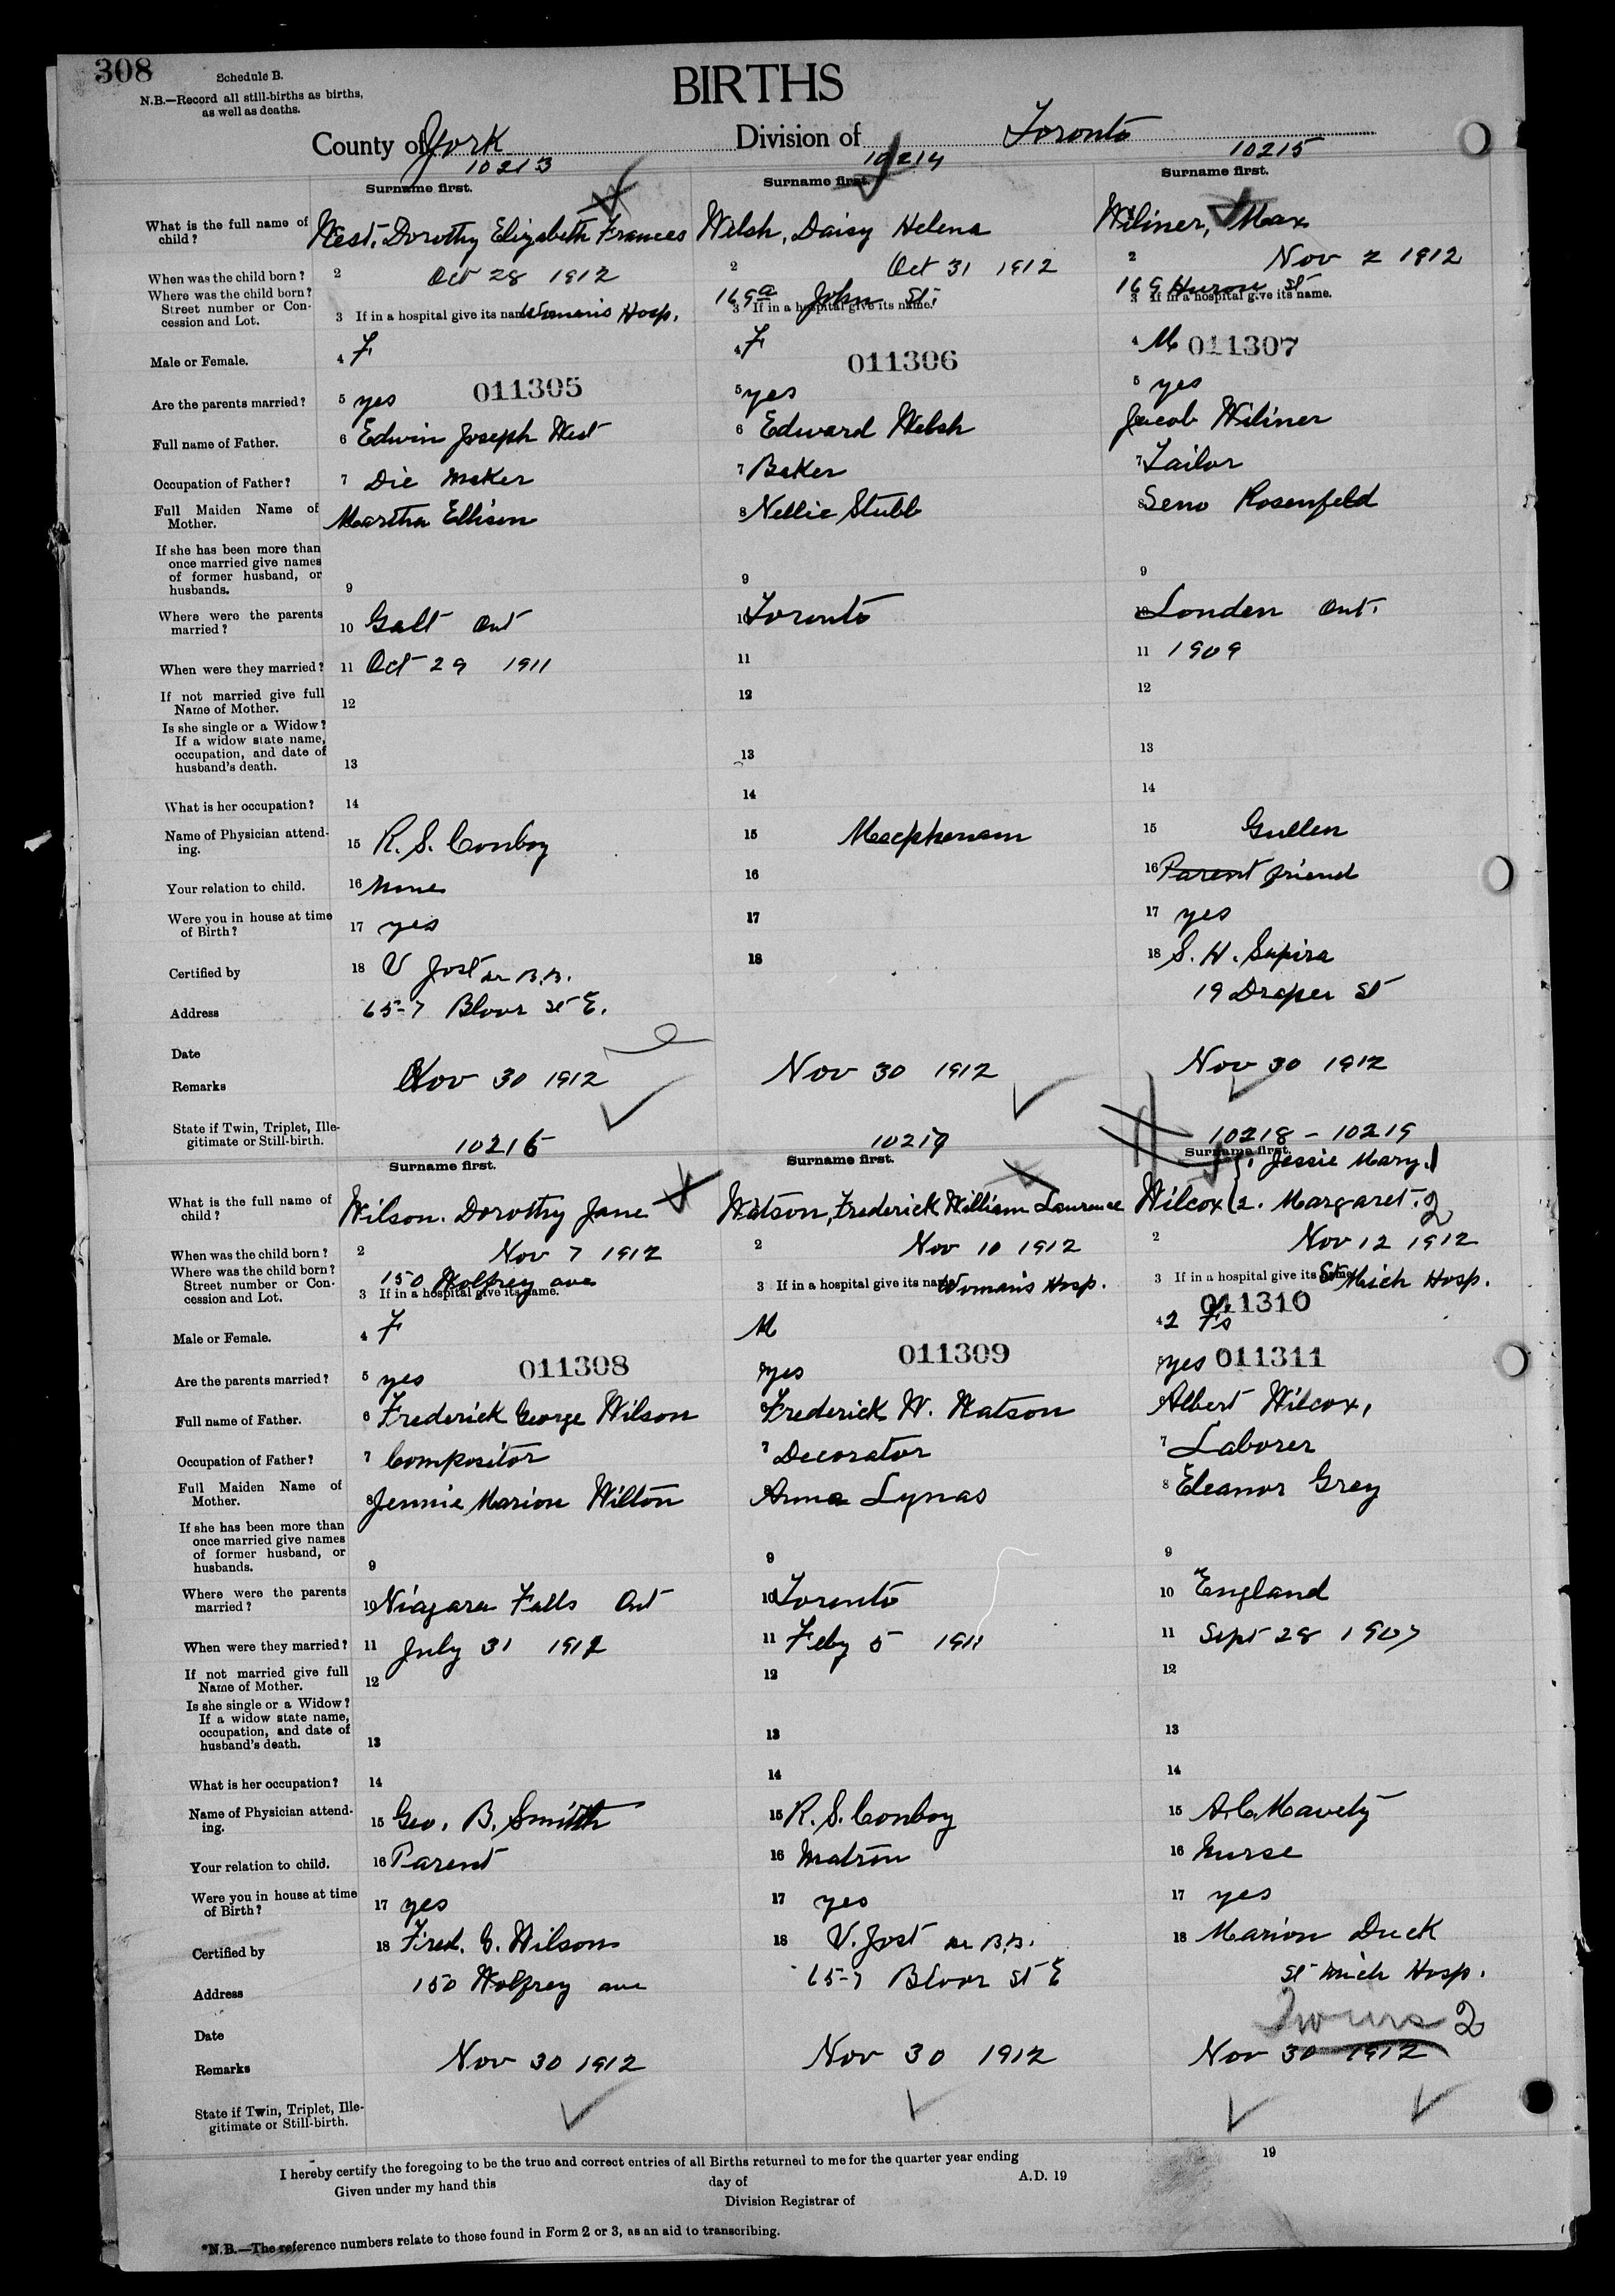 308
Schedule B.
N.B.—Record all still-births as births,
as well as deaths.
BIRTHS
County of York
Division of Toronto
10213
10214
10215
Surname first.
Surname first.
Surname first.
What is the full name of child? West, Dorothy Elizabeth Frances Welsh, Daisy Helena Wiliner, Max
When was the child born? 2 Oct 28 1912 2 Oct 31 1912 2 Nov 2 1912
Where was the child born? Street number or Concession and Lot. 3 If in a hospital give its name. Woman's Hosp. 169a John St. 3 If in a hospital give its name. 169 Huron St 3 If in a hospital give its name.
Male or Female. 4 F 4 F 4 M
011305 011306 011307
Are the parents married? 5 yes 5 yes 5 yes
Full name of Father. 6 Edwin Joseph West 6 Edward Welsh Jacob Wiliner
Occupation of Father? 7 Die Maker 7 Baker 7 Tailor
Full Maiden Name of Mother. Martha Ellison 8 Nellie Stubb 8 Seno Rosenfeld
If she has been more than once married give names of former husband, or husbands. 9 9 9
Where were the parents married? 10 Galt Ont 10 Toronto 10 London Ont.
When were they married? 11 Oct 29 1911 11 11 1909
If not married give full Name of Mother. 12 12 12
Is she single or a Widow? If a widow state name, occupation, and date of husband's death. 13 13 13
What is her occupation? 14 14 14
Name of Physician attending. 15 R. S. Conboy 15 Macpherson 15 Gullen
Your relation to child. 16 None 16 16 Parent friend
Were you in house at time of Birth? 17 yes 17 17 yes
Certified by 18 V Jost 18 18 S. H. Sapira
Address 65-7 Bloor St E. 19 Draper St
Date
Remarks Nov 30 1912 Nov 30 1912 Nov 30 1912
State if Twin, Triplet, Illegitimate or Still-birth.
10216
10217
10218 - 10219
Surname first.
Surname first.
Surname first.
What is the full name of child? Wilson. Dorothy Jane Watson, Frederick William Laurence Wilcox (1. Jessie Mary.) 2. Margaret. 2
When was the child born? 2 Nov 7 1912 2 Nov 10 1912 2 Nov 12 1912
Where was the child born? Street number or Concession and Lot. 150 Wolfrey ave 3 If in a hospital give its name. 3 If in a hospital give its name Woman's Hosp. 3 If in a hospital give its name St Mich Hosp.
Male or Female. 4 F M 4 2 Fs
011310
011308 011309 011311
Are the parents married? 5 yes yes yes
Full name of Father. 6 Frederick George Wilson Frederick W. Watson Albert Wilcox,
Occupation of Father? 7 Compositor 7 Decorator 7 Laborer
Full Maiden Name of Mother. 8 Jennie Marion Wilton Anna Lynas 8 Eleanor Grey
If she has been more than once married give names of former husband, or husbands. 9 9 9
Where were the parents married? 10 Niagara Falls Ont 10 Toronto 10 England
When were they married? 11 July 31 1912 11 Feby 5 1911 11 Sept 28 1907
If not married give full Name of Mother. 12 12 12
Is she single or a Widow? If a widow state name, occupation, and date of husband's death. 13 13 13
What is her occupation? 14 14 14
Name of Physician attending. 15 Geo. B. Smith 15 R. S. Conboy 15 McCavety
Your relation to child. 16 Parent 16 Matron 16 Nurse
Were you in house at time of Birth? 17 yes 17 yes 17 yes
Certified by 18 Fred. G. Wilson 18 V. Jost 18 Marion Duck
Address 150 Wolfrey ave 65-7 Bloor St E St Mich Hosp.
Date Twins 2
Remarks Nov 30 1912 Nov 30 1912 Nov 30 1912
State if Twin, Triplet, Illegitimate or Still-birth.
I hereby certify the foregoing to be the true and correct entries of all Births returned to me for the quarter year ending 19
Given under my hand this day of A.D. 19
Division Registrar of
*N.B.—The reference numbers relate to those found in Form 2 or 3, as an aid to transcribing.